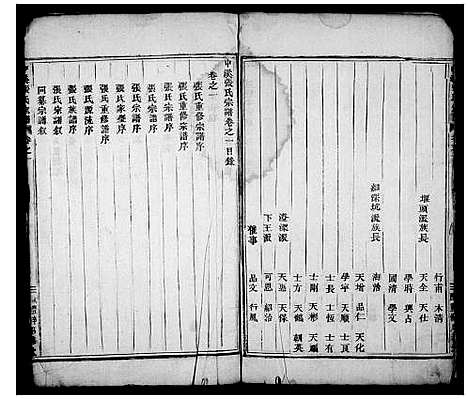 堰頭派族長
行甫 木清
天全 天仕
學時 與占
國清 學文
細深坑派族長
海浩
天增 品仁 天化
學宇 天順 士頁
士長 士恆 士有
士剛 天彬 天福
士方 天鶴 朝英
澄深派
天進 天保
下王派
可恩 紹治
獲事
品文 行鳳
中溪張氏宗譜卷之一目錄
卷之一
張氏重修宗譜序
張氏重修宗譜序
張氏宗譜序
張氏宗譜序
張氏家譜序
張氏重修譜序
張氏源流序
張氏族譜序
張氏宗譜敘
同纂宗譜敘